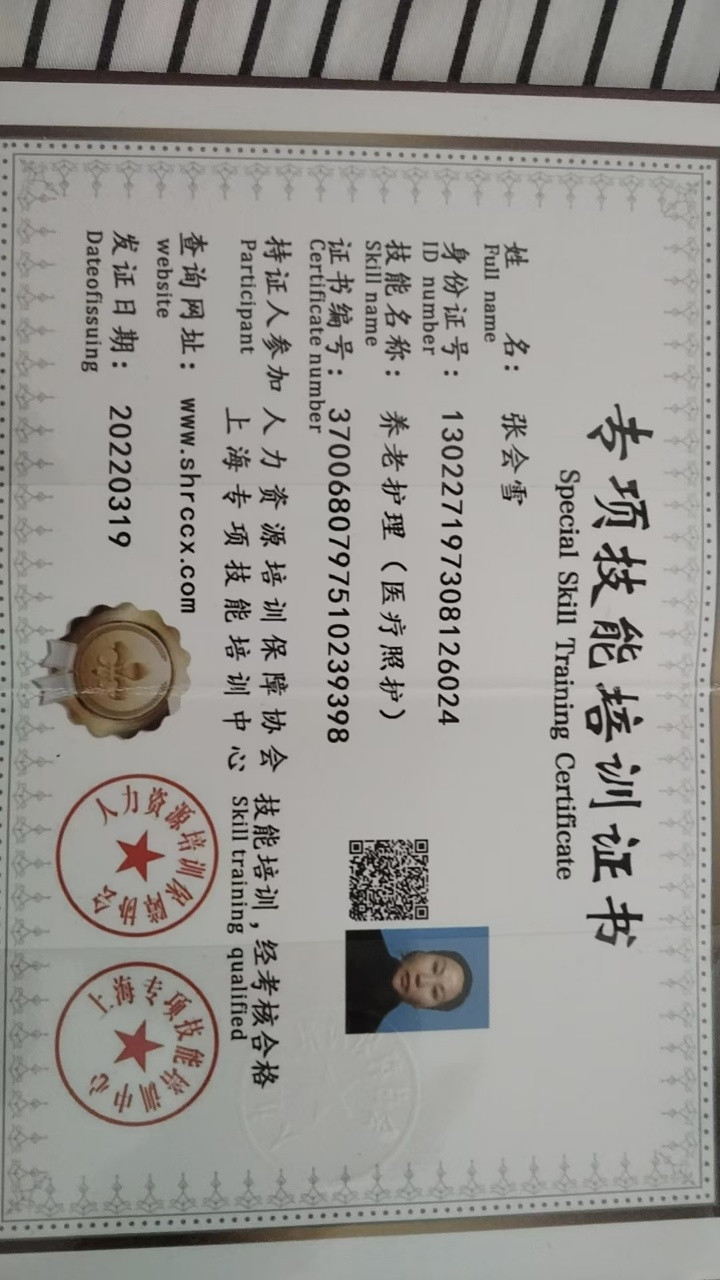 专项技能培训证书
Special Skill Training Certificate
姓 名： 张会雪
Full name
身份证号： 130227197308126024
ID number
技能名称： 养老护理（医疗照护）
Skill name
证书编号： 3700680797510239398
Certificate number
持证人参加 人力资源培训保障协会 技能培训，经考核合格
Participant 上海专项技能培训中心 Skill training qualified
查询网址： www.shrccx.com
website
发证日期： 20220319
Dateofissuing
上海专项技能培训中心